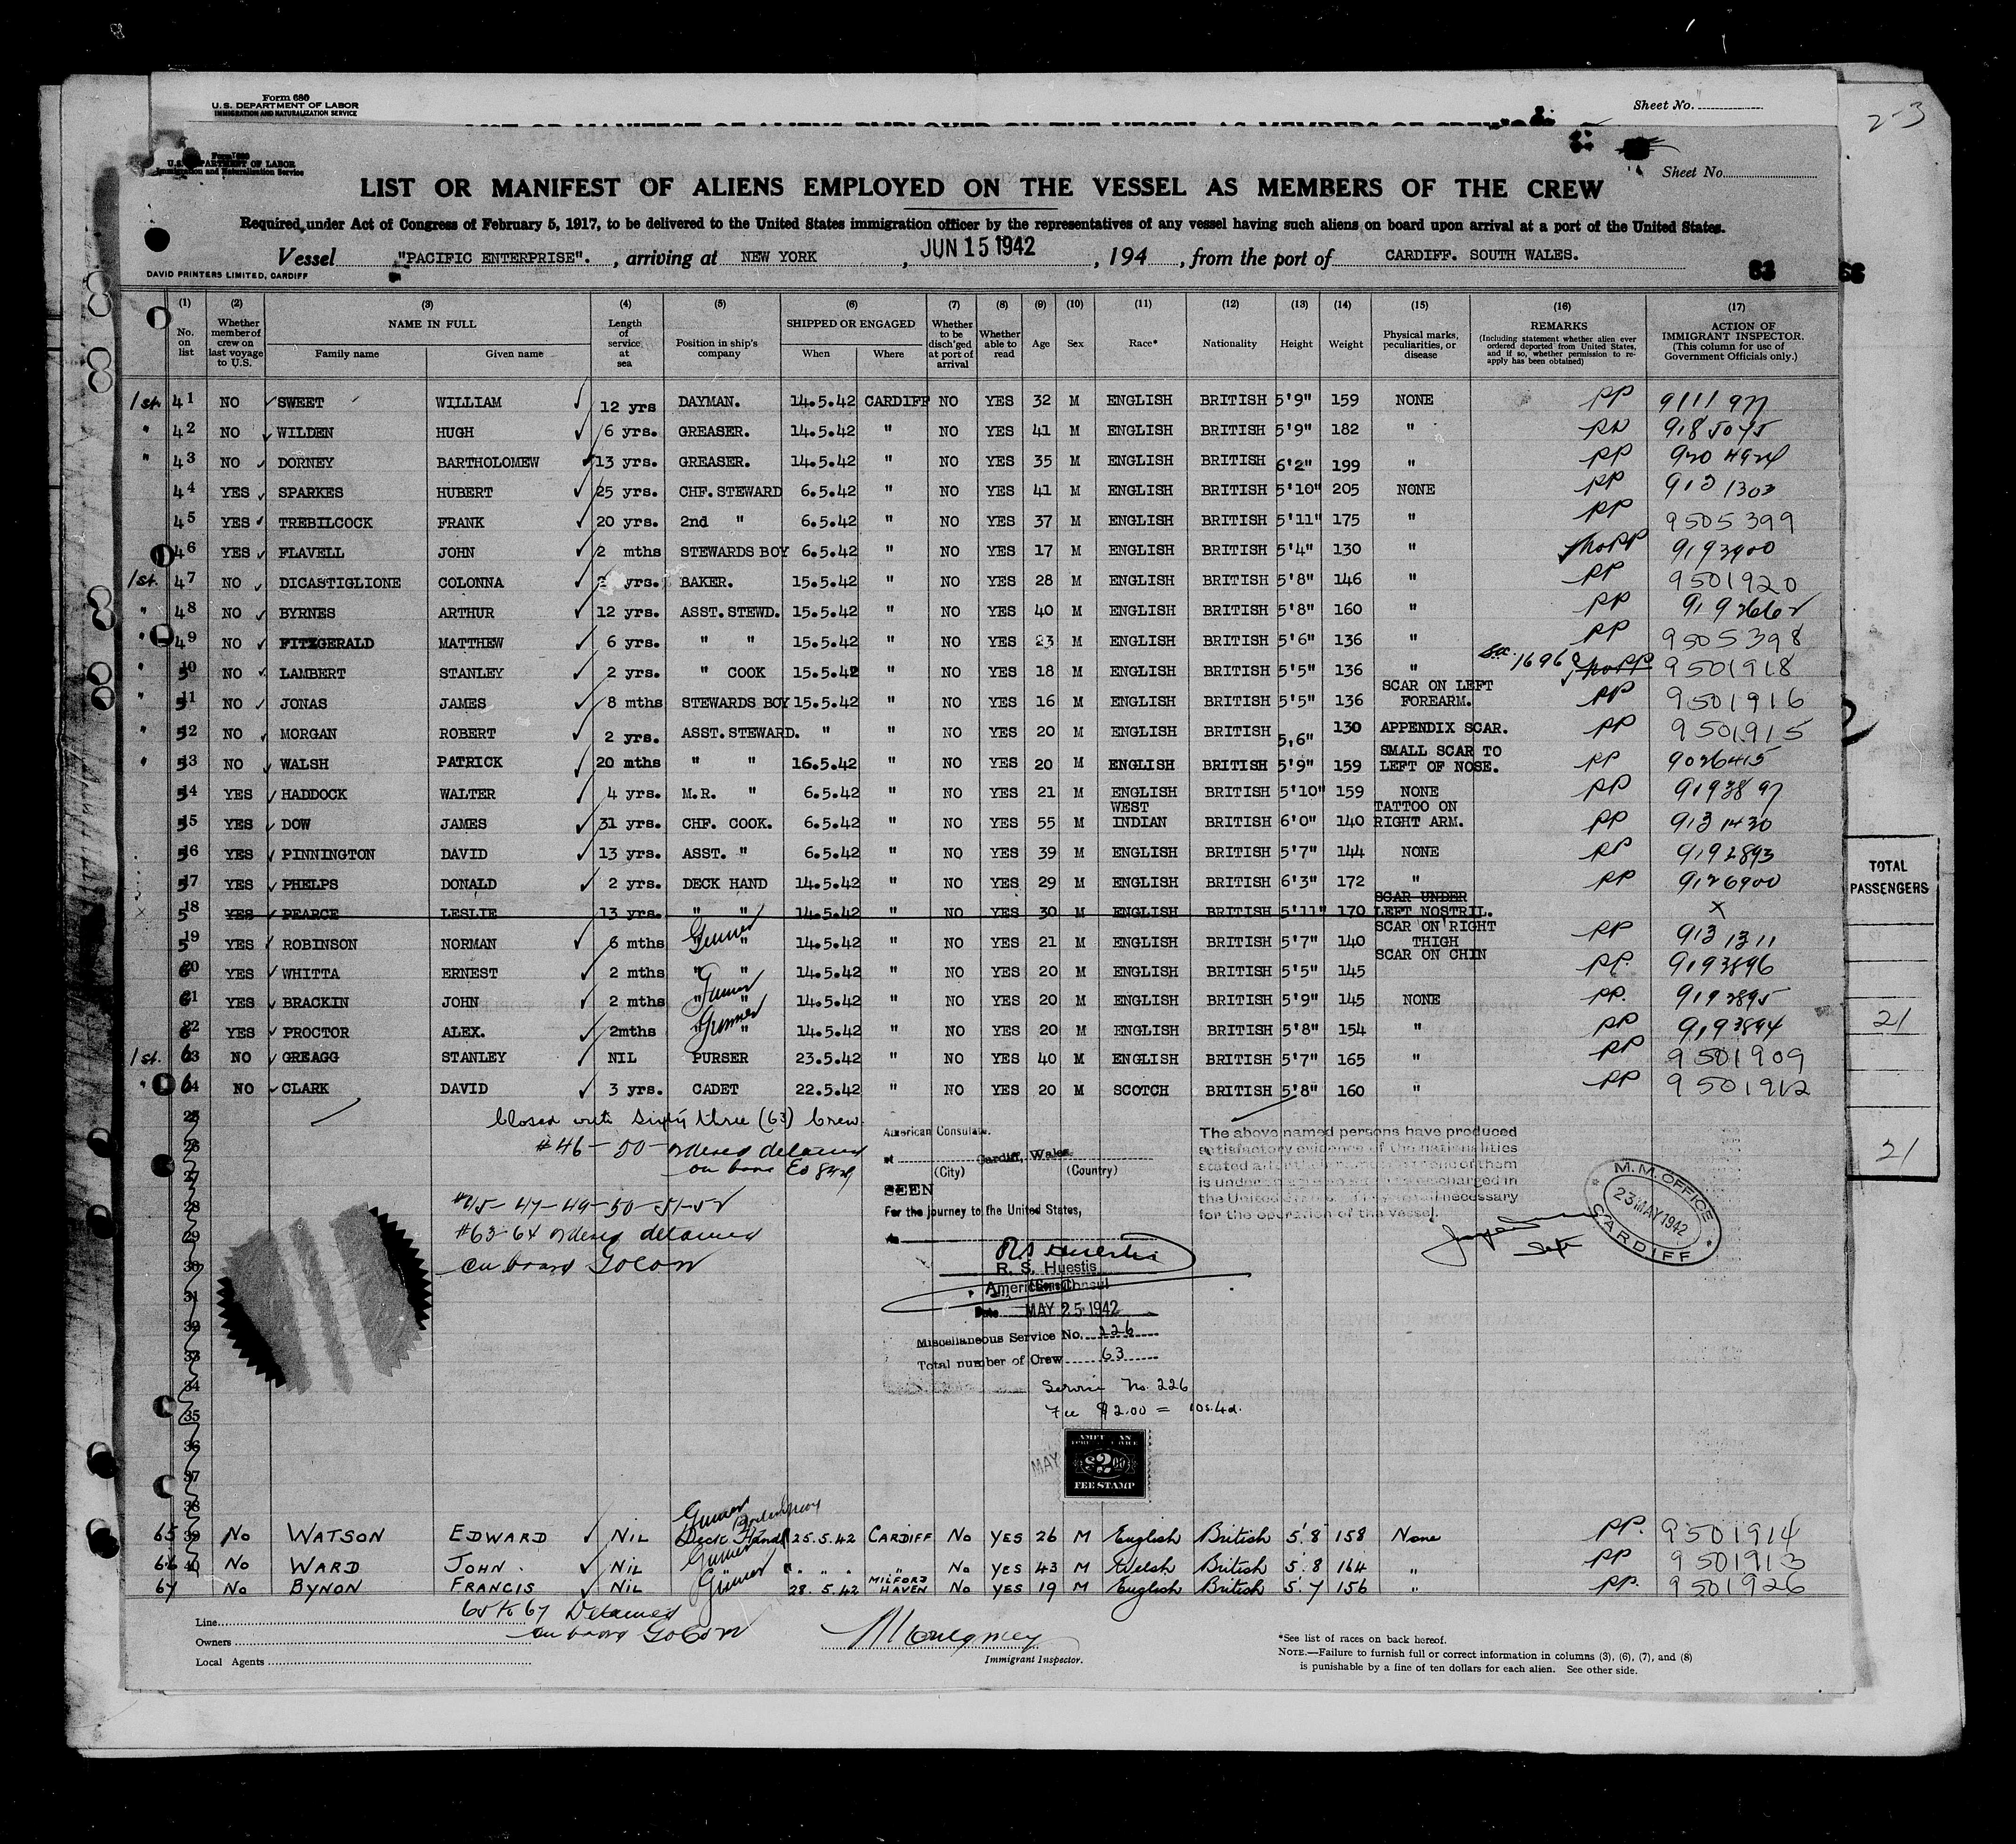 Form 680
U.S. DEPARTMENT OF LABOR
IMMIGRATION AND NATURALIZATION SERVICE
Sheet No.
2-3
Form 680
U.S. DEPARTMENT OF LABOR
Immigration and Naturalization Service
Sheet No.
LIST OR MANIFEST OF ALIENS EMPLOYED ON THE VESSEL AS MEMBERS OF THE CREW
Required under Act of Congress of February 5, 1917, to be delivered to the United States immigration officer by the representatives of any vessel having such aliens on board upon arrival at a port of the United States.
Vessel "PACIFIC ENTERPRISE". , arriving at NEW YORK , JUN 15 1942 , 194 , from the port of CARDIFF. SOUTH WALES.
DAVID PRINTERS LIMITED, CARDIFF
63
(1) (2) (3) (4) (5) (6) (7) (8) (9) (10) (11) (12) (13) (14) (15) (16) (17)
No. on list
Whether member of crew on last voyage to U.S.
NAME IN FULL
Family name
Given name
Length of service at sea
Position in ship's company
SHIPPED OR ENGAGED
When
Where
Whether to be disch'ged at port of arrival
Whether able to read
Age
Sex
Race*
Nationality
Height
Weight
Physical marks, peculiarities, or disease
REMARKS
(Including statement whether alien ever ordered deported from United States, and if so, whether permission to re-apply has been obtained)
ACTION OF IMMIGRANT INSPECTOR.
(This column for use of Government Officials only.)
1st. 41 NO SWEET WILLIAM 12 yrs DAYMAN. 14.5.42 CARDIFF NO YES 32 M ENGLISH BRITISH 5'9" 159 NONE PP
" 42 NO WILDEN HUGH 6 yrs. GREASER. 14.5.42 " NO YES 41 M ENGLISH BRITISH 5'9" 182 " PP
" 43 NO DORNEY BARTHOLOMEW 13 yrs. GREASER. 14.5.42 " NO YES 35 M ENGLISH BRITISH 6'2" 199 " PP
44 YES SPARKES HUBERT 25 yrs. CHF. STEWARD 6.5.42 " NO YES 41 M ENGLISH BRITISH 5'10" 205 NONE PP 9131303
45 YES TREBILCOCK FRANK 20 yrs. 2nd " 6.5.42 " NO YES 37 M ENGLISH BRITISH 5'11" 175 " PP 9505399
46 YES FLAVELL JOHN 2 mths STEWARDS BOY 6.5.42 " NO YES 17 M ENGLISH BRITISH 5'4" 130 " noPP 9193900
1st. 47 NO DICASTIGLIONE COLONNA yrs. BAKER. 15.5.42 " NO YES 28 M ENGLISH BRITISH 5'8" 146 " PP 9501920
" 48 NO BYRNES ARTHUR 12 yrs. ASST. STEWD. 15.5.42 " NO YES 40 M ENGLISH BRITISH 5'8" 160 " PP
" 49 NO FITZGERALD MATTHEW 6 yrs. " " 15.5.42 " NO YES 23 M ENGLISH BRITISH 5'6" 136 " PP 9505398
" 50 NO LAMBERT STANLEY 2 yrs. " COOK 15.5.42 " NO YES 18 M ENGLISH BRITISH 5'5" 136 " noPP 9501918
" 51 NO JONAS JAMES 8 mths STEWARDS BOY 15.5.42 " NO YES 16 M ENGLISH BRITISH 5'5" 136 SCAR ON LEFT FOREARM. PP 9501916
" 52 NO MORGAN ROBERT 2 yrs. ASST. STEWARD. " " NO YES 20 M ENGLISH BRITISH 5,6" 130 APPENDIX SCAR. PP 9501915
" 53 NO WALSH PATRICK 20 mths " " 16.5.42 " NO YES 20 M ENGLISH BRITISH 5'9" 159 SMALL SCAR TO LEFT OF NOSE. PP 9026415
54 YES HADDOCK WALTER 4 yrs. M.R. " 6.5.42 " NO YES 21 M ENGLISH BRITISH 5'10" 159 NONE PP 9193897
55 YES DOW JAMES 31 yrs. CHF. COOK. 6.5.42 " NO YES 55 M WEST INDIAN BRITISH 6'0" 140 TATTOO ON RIGHT ARM. PP 9131430
56 YES PINNINGTON DAVID 13 yrs. ASST. " 6.5.42 " NO YES 39 M ENGLISH BRITISH 5'7" 144 NONE PP 9192893
57 YES PHELPS DONALD 2 yrs. DECK HAND 14.5.42 " NO YES 29 M ENGLISH BRITISH 6'3" 172 " PP 9126900
x 58 YES PEARCE LESLIE 13 yrs. " " 14.5.42 " NO YES 30 M ENGLISH BRITISH 5'11" 170 SCAR UNDER LEFT NOSTRIL. X
59 YES ROBINSON NORMAN 6 mths " " Gunner 14.5.42 " NO YES 21 M ENGLISH BRITISH 5'7" 140 SCAR ON RIGHT THIGH PP 9131311
60 YES WHITTA ERNEST 2 mths " " 14.5.42 " NO YES 20 M ENGLISH BRITISH 5'5" 145 SCAR ON CHIN PP. 9193896
61 YES BRACKIN JOHN 2 mths " " Gunner 14.5.42 " NO YES 20 M ENGLISH BRITISH 5'9" 145 NONE PP. 9193895
62 YES PROCTOR ALEX. 2mths " " Gunner 14.5.42 " NO YES 20 M ENGLISH BRITISH 5'8" 154 " PP 9193894
1st. 63 NO GREAGG STANLEY NIL PURSER 23.5.42 " NO YES 40 M ENGLISH BRITISH 5'7" 165 " PP 9501909
" 64 NO CLARK DAVID 3 yrs. CADET 22.5.42 " NO YES 20 M SCOTCH BRITISH 5'8" 160 " PP 9501912
25 Closed with Sixty three (63) Crew.
26 #46-50-ordered detained
27 on board EO 8429
28 #45-47-49-50-51-52
29 #63-64 ordered detained
30 on board
31
32
33
34
35
36
37
38
American Consulate.
at Cardiff, Wales.
(City) (Country)
SEEN
For the journey to the United States,
R. S. Huestis
American Consul
Date MAY 25 1942
Miscellaneous Service No. 226
Total number of Crew 63
Service No. 226
Fee $2.00 = 10s.4d.
MAY
$2.00
FEE STAMP
The above named persons have produced
satisfactory evidence of the nationalities
the United
for the operation of the vessel.
M.M. OFFICE
23 MAY 1942
CARDIFF
TOTAL PASSENGERS
21
21
65 39 No WATSON EDWARD NIL Gunner Deck Hand 25.5.42 CARDIFF No YES 26 M English British 5.8 158 None PP. 9501914
66 40 No WARD JOHN. NIL Gunner " " " " No YES 43 M Welsh British 5.8 164 " PP 9501913
67 No BYNON FRANCIS NIL Gunner 28.5.42 MILFORD HAVEN No YES 19 M English British 5.7 156 " PP. 9501926
65 to 67 Detained
on board
Line
Owners
Local Agents
Immigrant Inspector.
*See list of races on back hereof.
NOTE.—Failure to furnish full or correct information in columns (3), (6), (7), and (8)
is punishable by a fine of ten dollars for each alien. See other side.